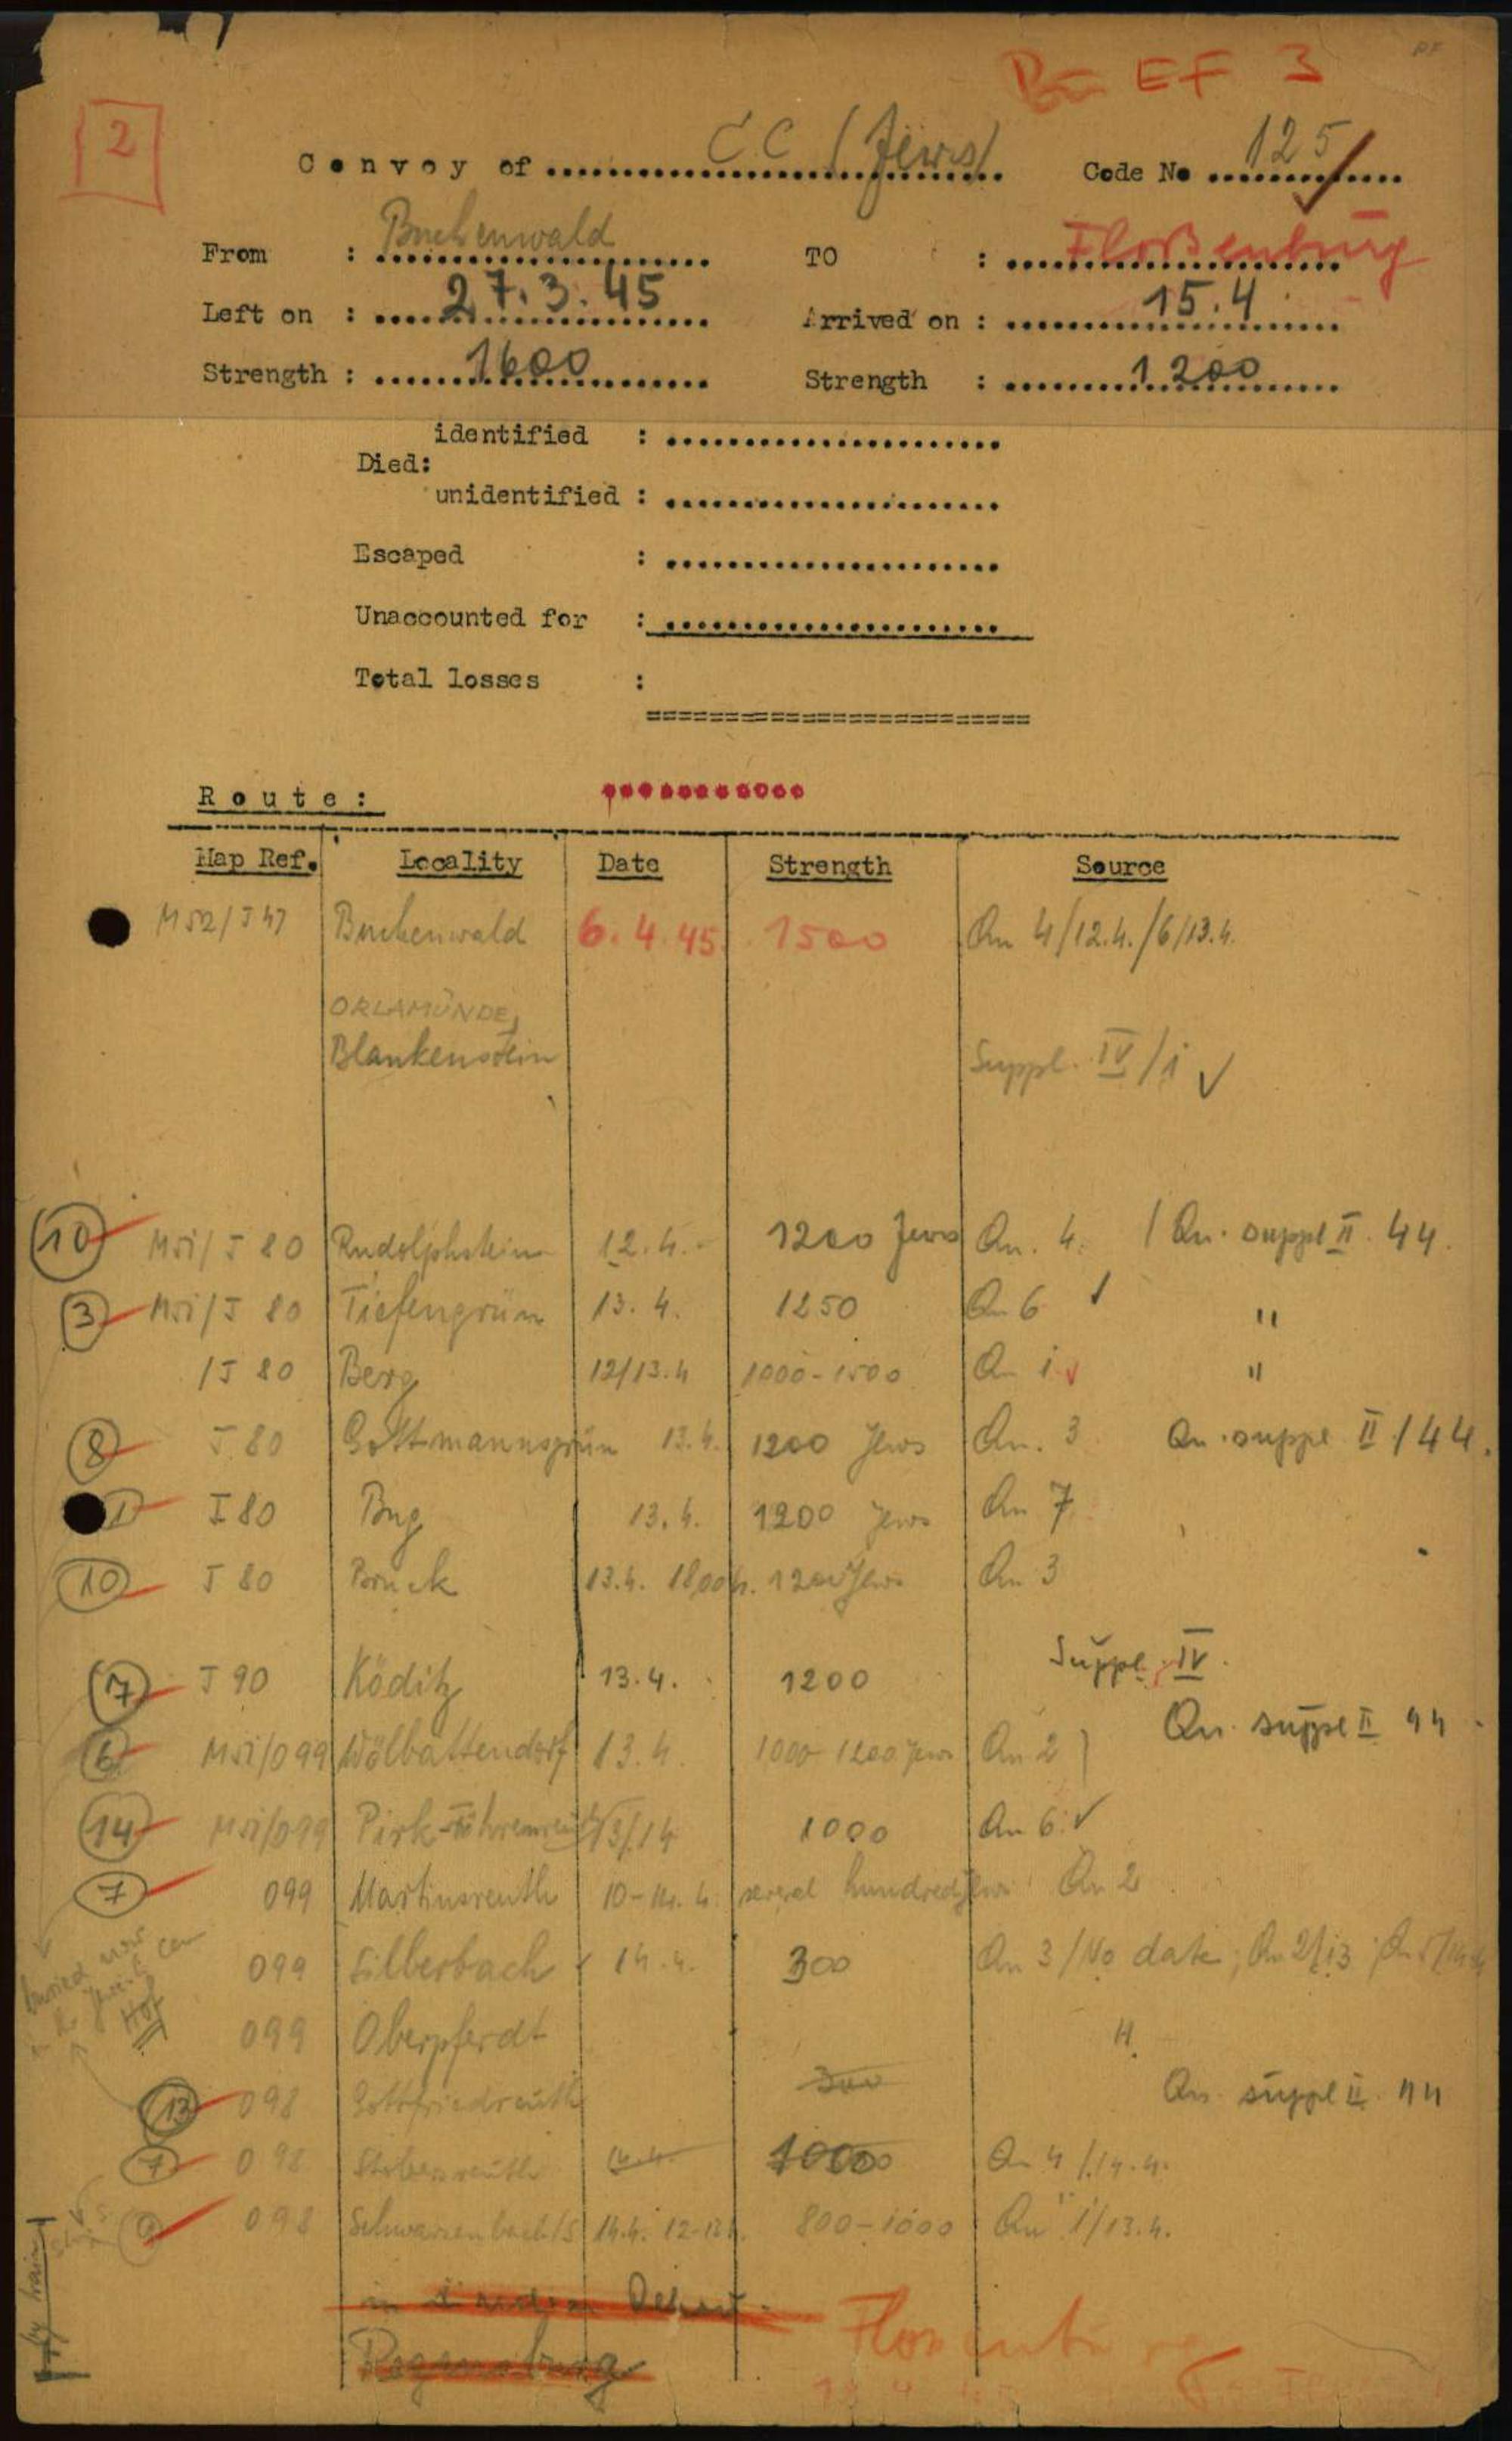 EF 3
2
Convoy of C.C (Jews) Code No 125
From : Buchenwald TO : Floßenbürg
Left on : 27.3.45 Arrived on : 15.4
Strength : 1600 Strength : 1200
identified :
Died:
unidentified :
Escaped :
Unaccounted for :
Total losses :
=========================
Route:
Map Ref. Locality Date Strength Source
M52/J47 Buchenwald 6.4.45 1500 Qn 4/12.4./6/13.4.
ORLAMÜNDE,
Blankenstein Suppl. IV/1 ✓
10 M51/J 80 Rudolphstein 12.4. 1200 Jews Qn. 4. / Qn. suppl II. 44.
3 M51/J 80 Tiefengrün 13.4. 1250 Qn 6 ✓ "
/J 80 Berg 12/13.4 1000-1500 Qn 1 ✓ "
8 J 80 Gottmannsgrün 13.4. 1200 Jews Qn. 3 Qn. suppl II/44.
1 J 80 Bug 13.4. 1200 Jews Qn 7
10 J 80 Bruck 13.4. 1800h. 1200 Jews Qn 3
7 J 90 Köditz 13.4. 1200 Suppl. IV.
Qn. suppl II 44
6 M51/099 Wölbattendorf 13.4. 1000-1200 Jews Qn 2
14 M51/099 Pirk-Föhrenreuth 13/14 1000 Qn 6 ✓
7 099 Martinsreuth 10-14.4. several hundred Jews Qn 2
099 Silberbach 14.4. 300 Qn 3/No date; Qn 2/13
buried now
Hof
099 Oberpferdt "
300
13 098 Gottfriedsreuth Qn. suppl II. 44
7 098 Stobersreuth 14.4. 1000 Qn 4/14.4.
9 098 Schwarzenbach/S 14.4. 12-13h. 800-1000 Qn 1/13.4.
by train
in
Regensburg